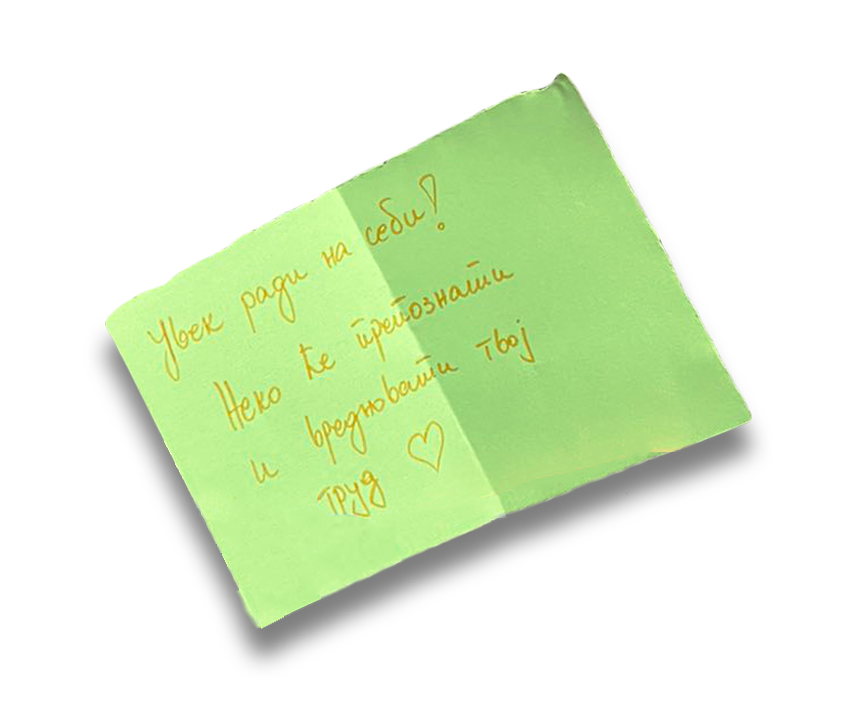 Увек ради на себи!
Неко ће препознати
и вредновати твој
труд ♡